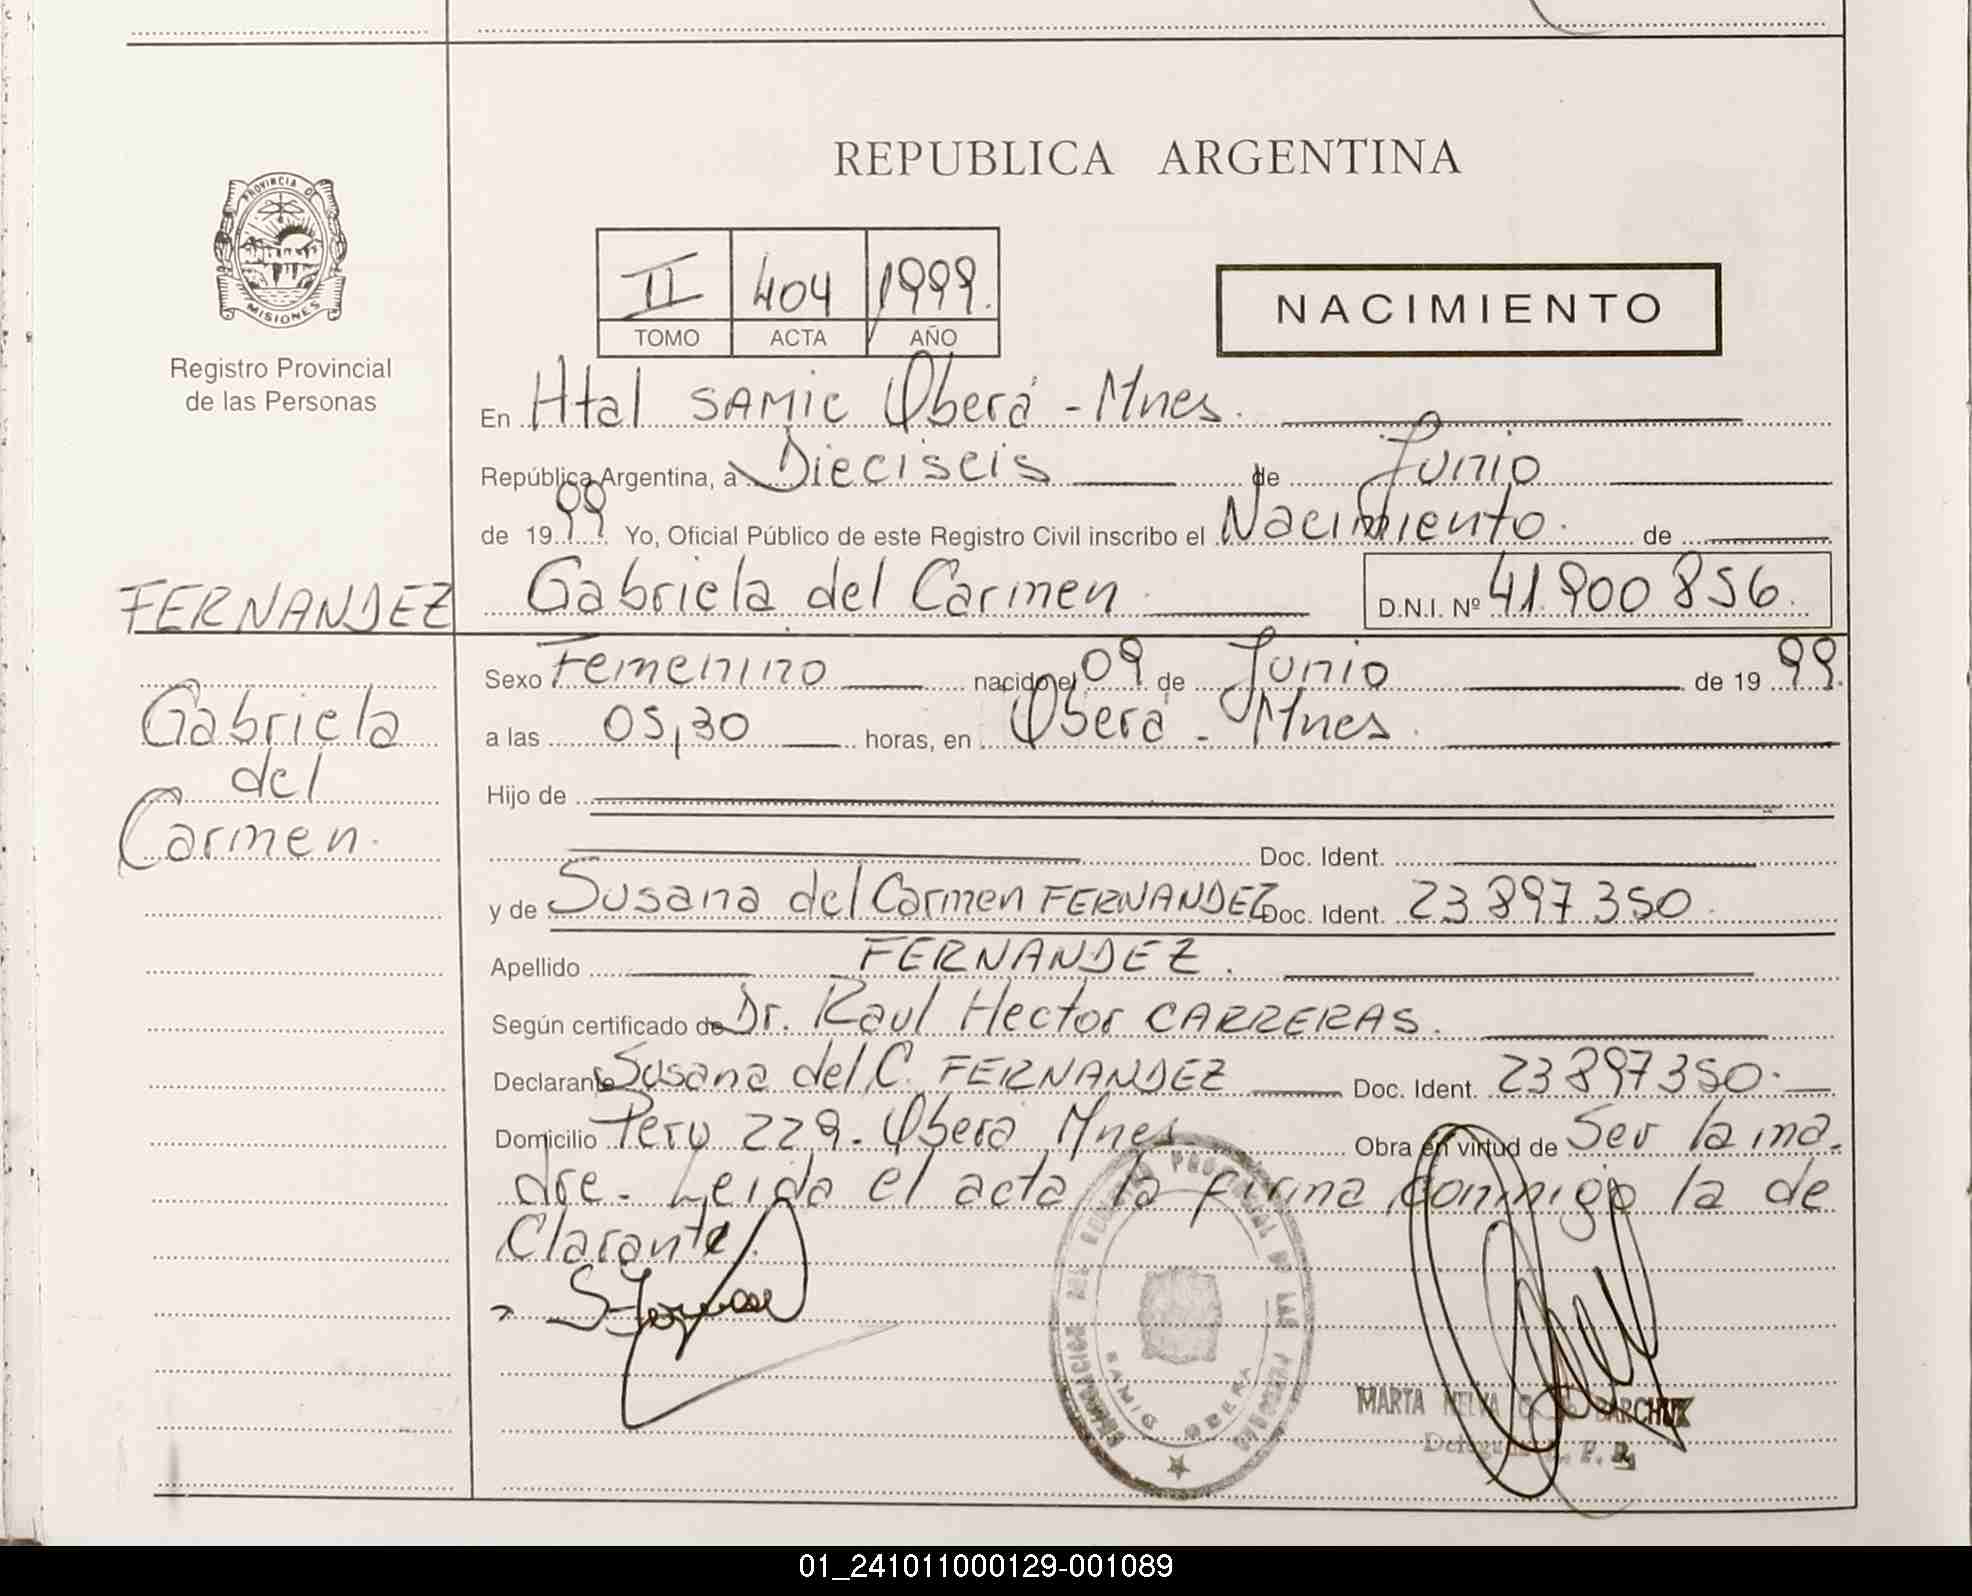 REPUBLICA ARGENTINA
PROVINCIA DE
MISIONES
Registro Provincial
de las Personas
II 404 1999.
TOMO ACTA AÑO
NACIMIENTO
En Htal SAMIC Oberá - Mnes.
República Argentina, a Dieciseis de Junio
de 1999 Yo, Oficial Público de este Registro Civil inscribo el Nacimiento. de
FERNANDEZ Gabriela del Carmen D.N.I. Nº 41.900 856.
Sexo Femenino nacido el 09 de Junio de 1999.
Gabriela
a las 05,30 horas, en Oberá - Mnes.
del
Hijo de
Carmen.
Doc. Ident.
y de Susana del Carmen FERNANDEZ Doc. Ident. 23 897 350.
Apellido FERNANDEZ.
Según certificado de Dr. Raul Hector CARRERAS.
Declarante Susana del C. FERNANDEZ Doc. Ident. 23 897 350.
Domicilio Peru 229. Oberá Mnes Obra en virtud de Ser la ma.
dre. Leida el acta la firma conmigo la de
Clarante.
SAMIC OBERA
MARTA BARCHUK
01_241011000129-001089